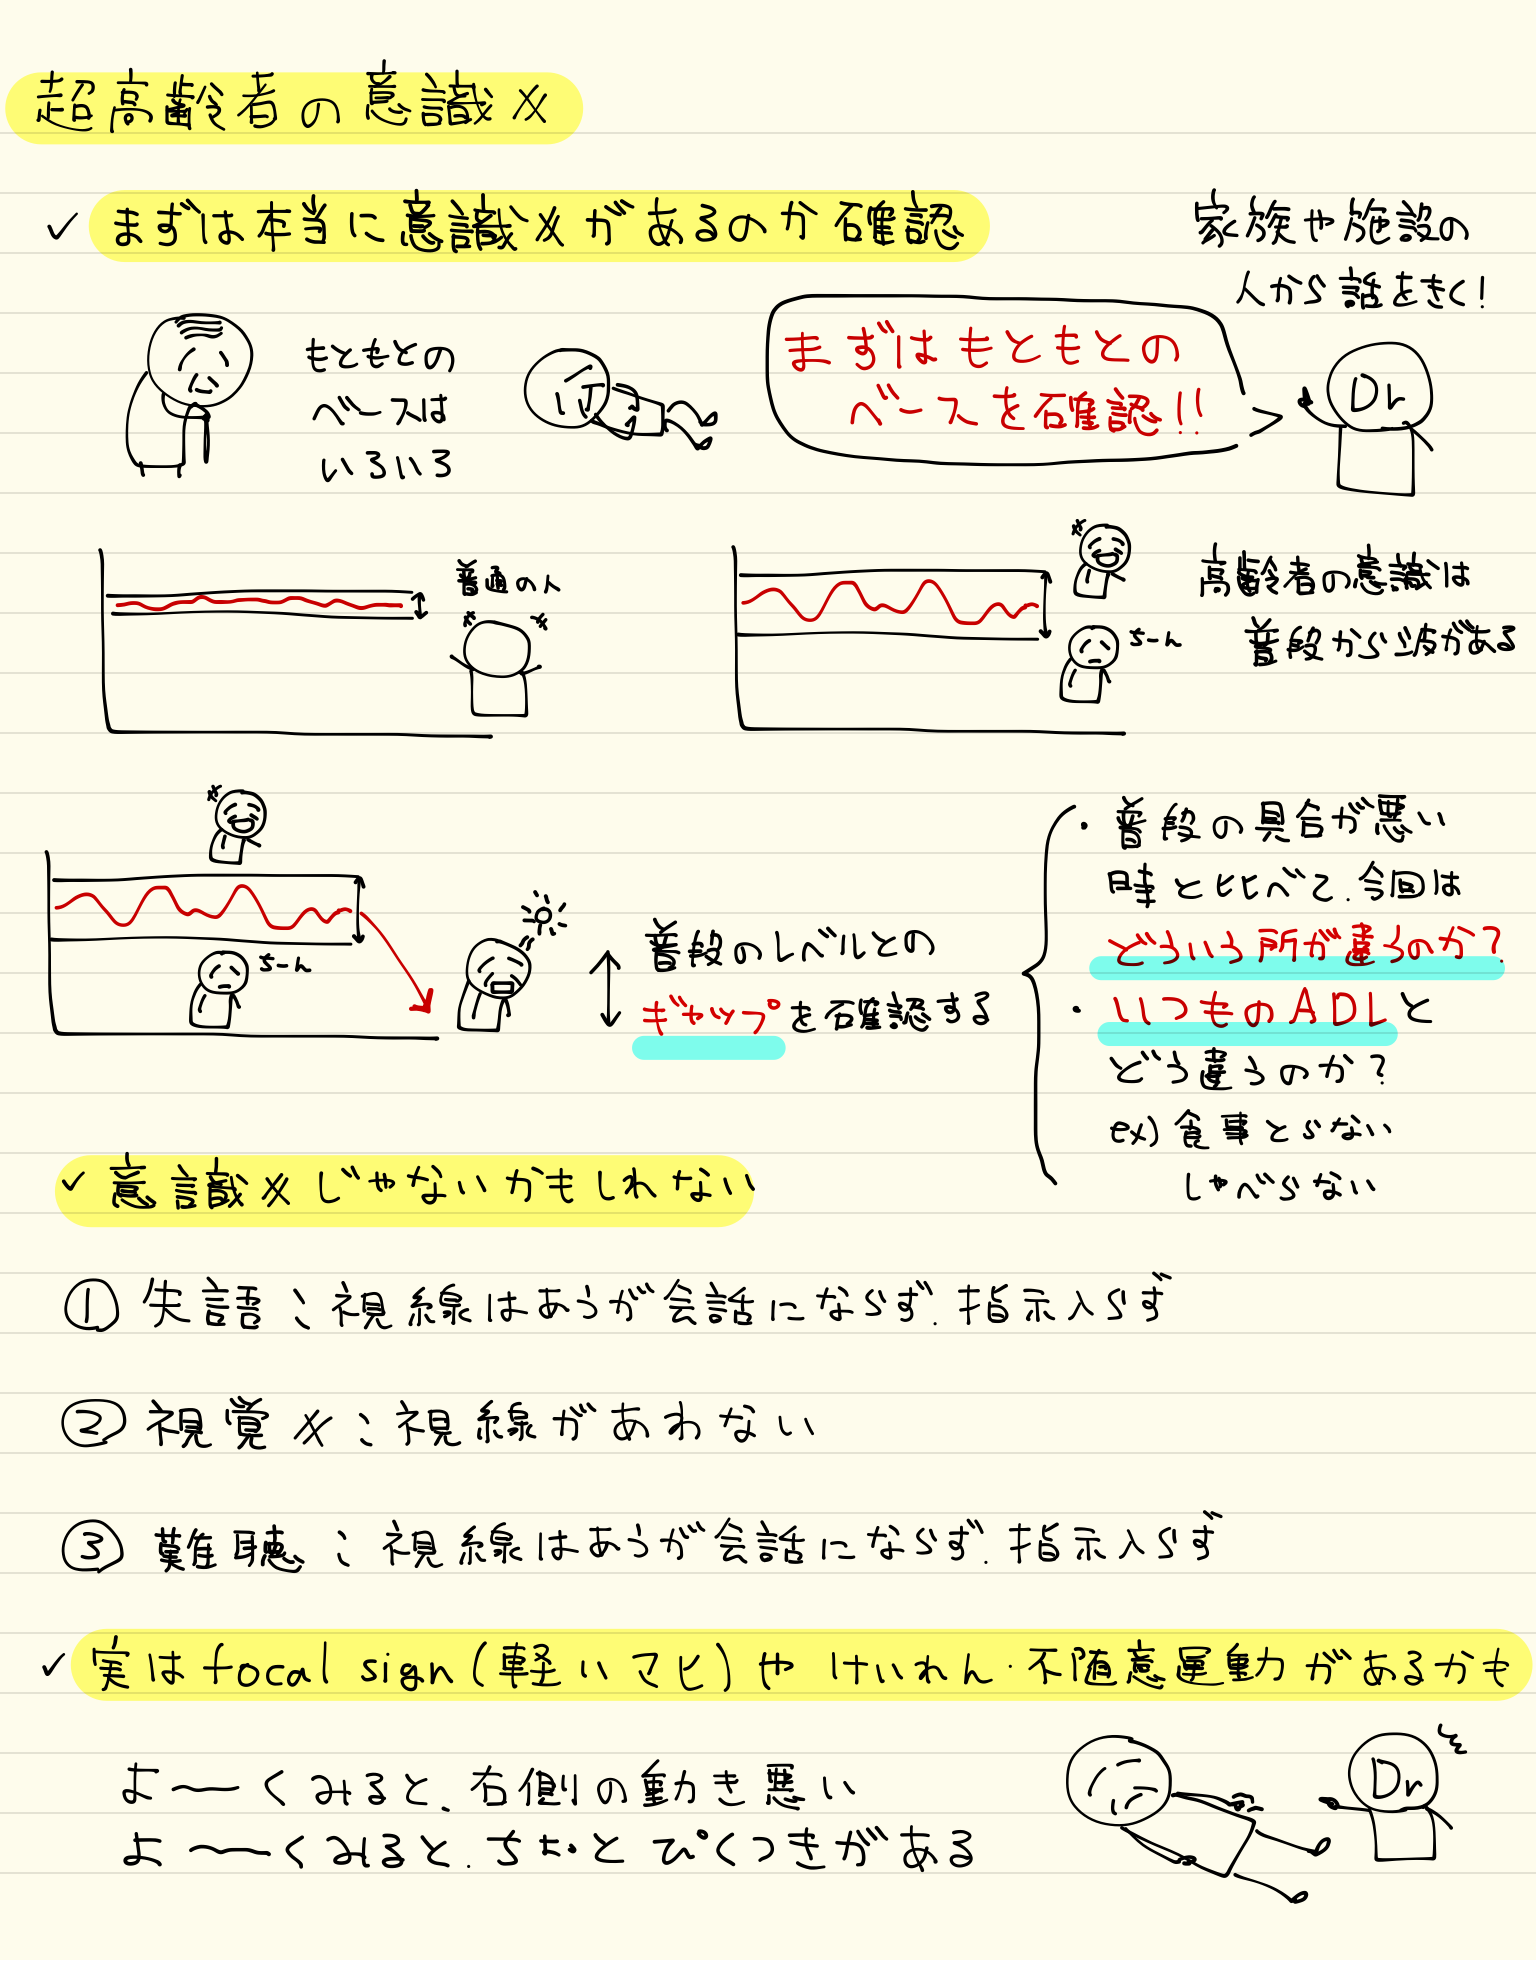 超高齢者の意識〆
✓ まずは本当に意識〆があるのか確認
家族や施設の
人から話をきく!
もともとの
ベースは
いろいろ
まずはもともとの
ベースを確認!!
Dr
普通の人
ちーん
高齢者の意識は
普段から波がある
ちーん
普段のレベルとの
ギャップを確認する
・普段の具合が悪い
時と比べて、今回は
どういう所が違うのか?
・いつものADLと
どう違うのか?
ex) 食事とらない
しゃべらない
✓ 意識〆じゃないかもしれない
① 失語:視線はあうが会話にならず、指示入らず
② 視覚〆:視線があわない
③ 難聴:視線はあうが会話にならず、指示入らず
✓ 実はfocal sign(軽いマヒ)や けいれん・不随意運動があるかも
よ〜くみると、右側の動き悪い
よ〜くみると、ちょっとぴくつきがある
Dr